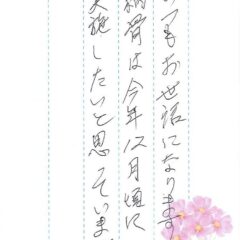 いつもお世話になります
納骨は今年12月頃に
実施したいと思っていま